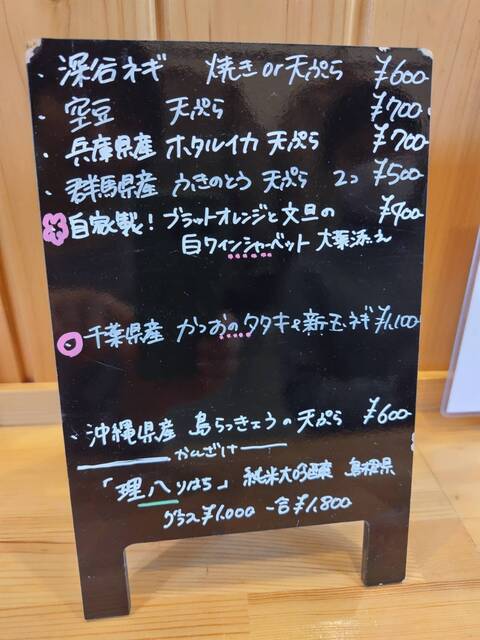 ・深谷ネギ 焼きor天ぷら ¥600-
・空豆 天ぷら ¥700-
・兵庫県産 ホタルイカ 天ぷら ¥700-
・群馬県産 ふきのとう 天ぷら 2コ ¥500
自家製! ブラッドオレンジと文旦の ¥400-
白ワインシャーベット 大葉添え
千葉県産 かつおのタタキ&新玉ネギ ¥1,100-
・沖縄県産 島らっきょうの天ぷら ¥600-
かんざけ
「理八 りはち」 純米大吟醸 島根県
グラス¥1,000 一合¥1,800